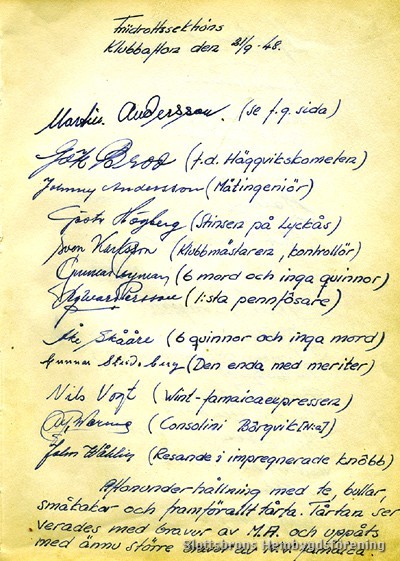 Friidrottssektions
Klubbafton den 21/9-48.
Martin Andersson. (se f.g. sida)
Gök Broo (f.d. Häggvikskometen)
Johnny Andersson (Mätingeniör)
Gösta Högberg (Stinsen på Lyckås)
Sven Karlsson (Klubbmästaren, kontrollör)
Gunnar Nyman (6 mord och inga quinnor)
Persson (1:sta pennfösare)
Åke Skååre (6 quinnor och inga mord)
Gunnar (Den enda med meriter)
Nils Vogt (Wint-Jamaicaexpressen)
(Consolini Bärgvik [N:2])
John Wåhlin (Resande i impregnerade knöbb)
Aftonunderhållning med te, bullar,
småkakor och framförallt tårta. Tårtan ser
verades med bravur av M.A. och uppåts
med ännu större av
Slottsbrons Hembygdsförening